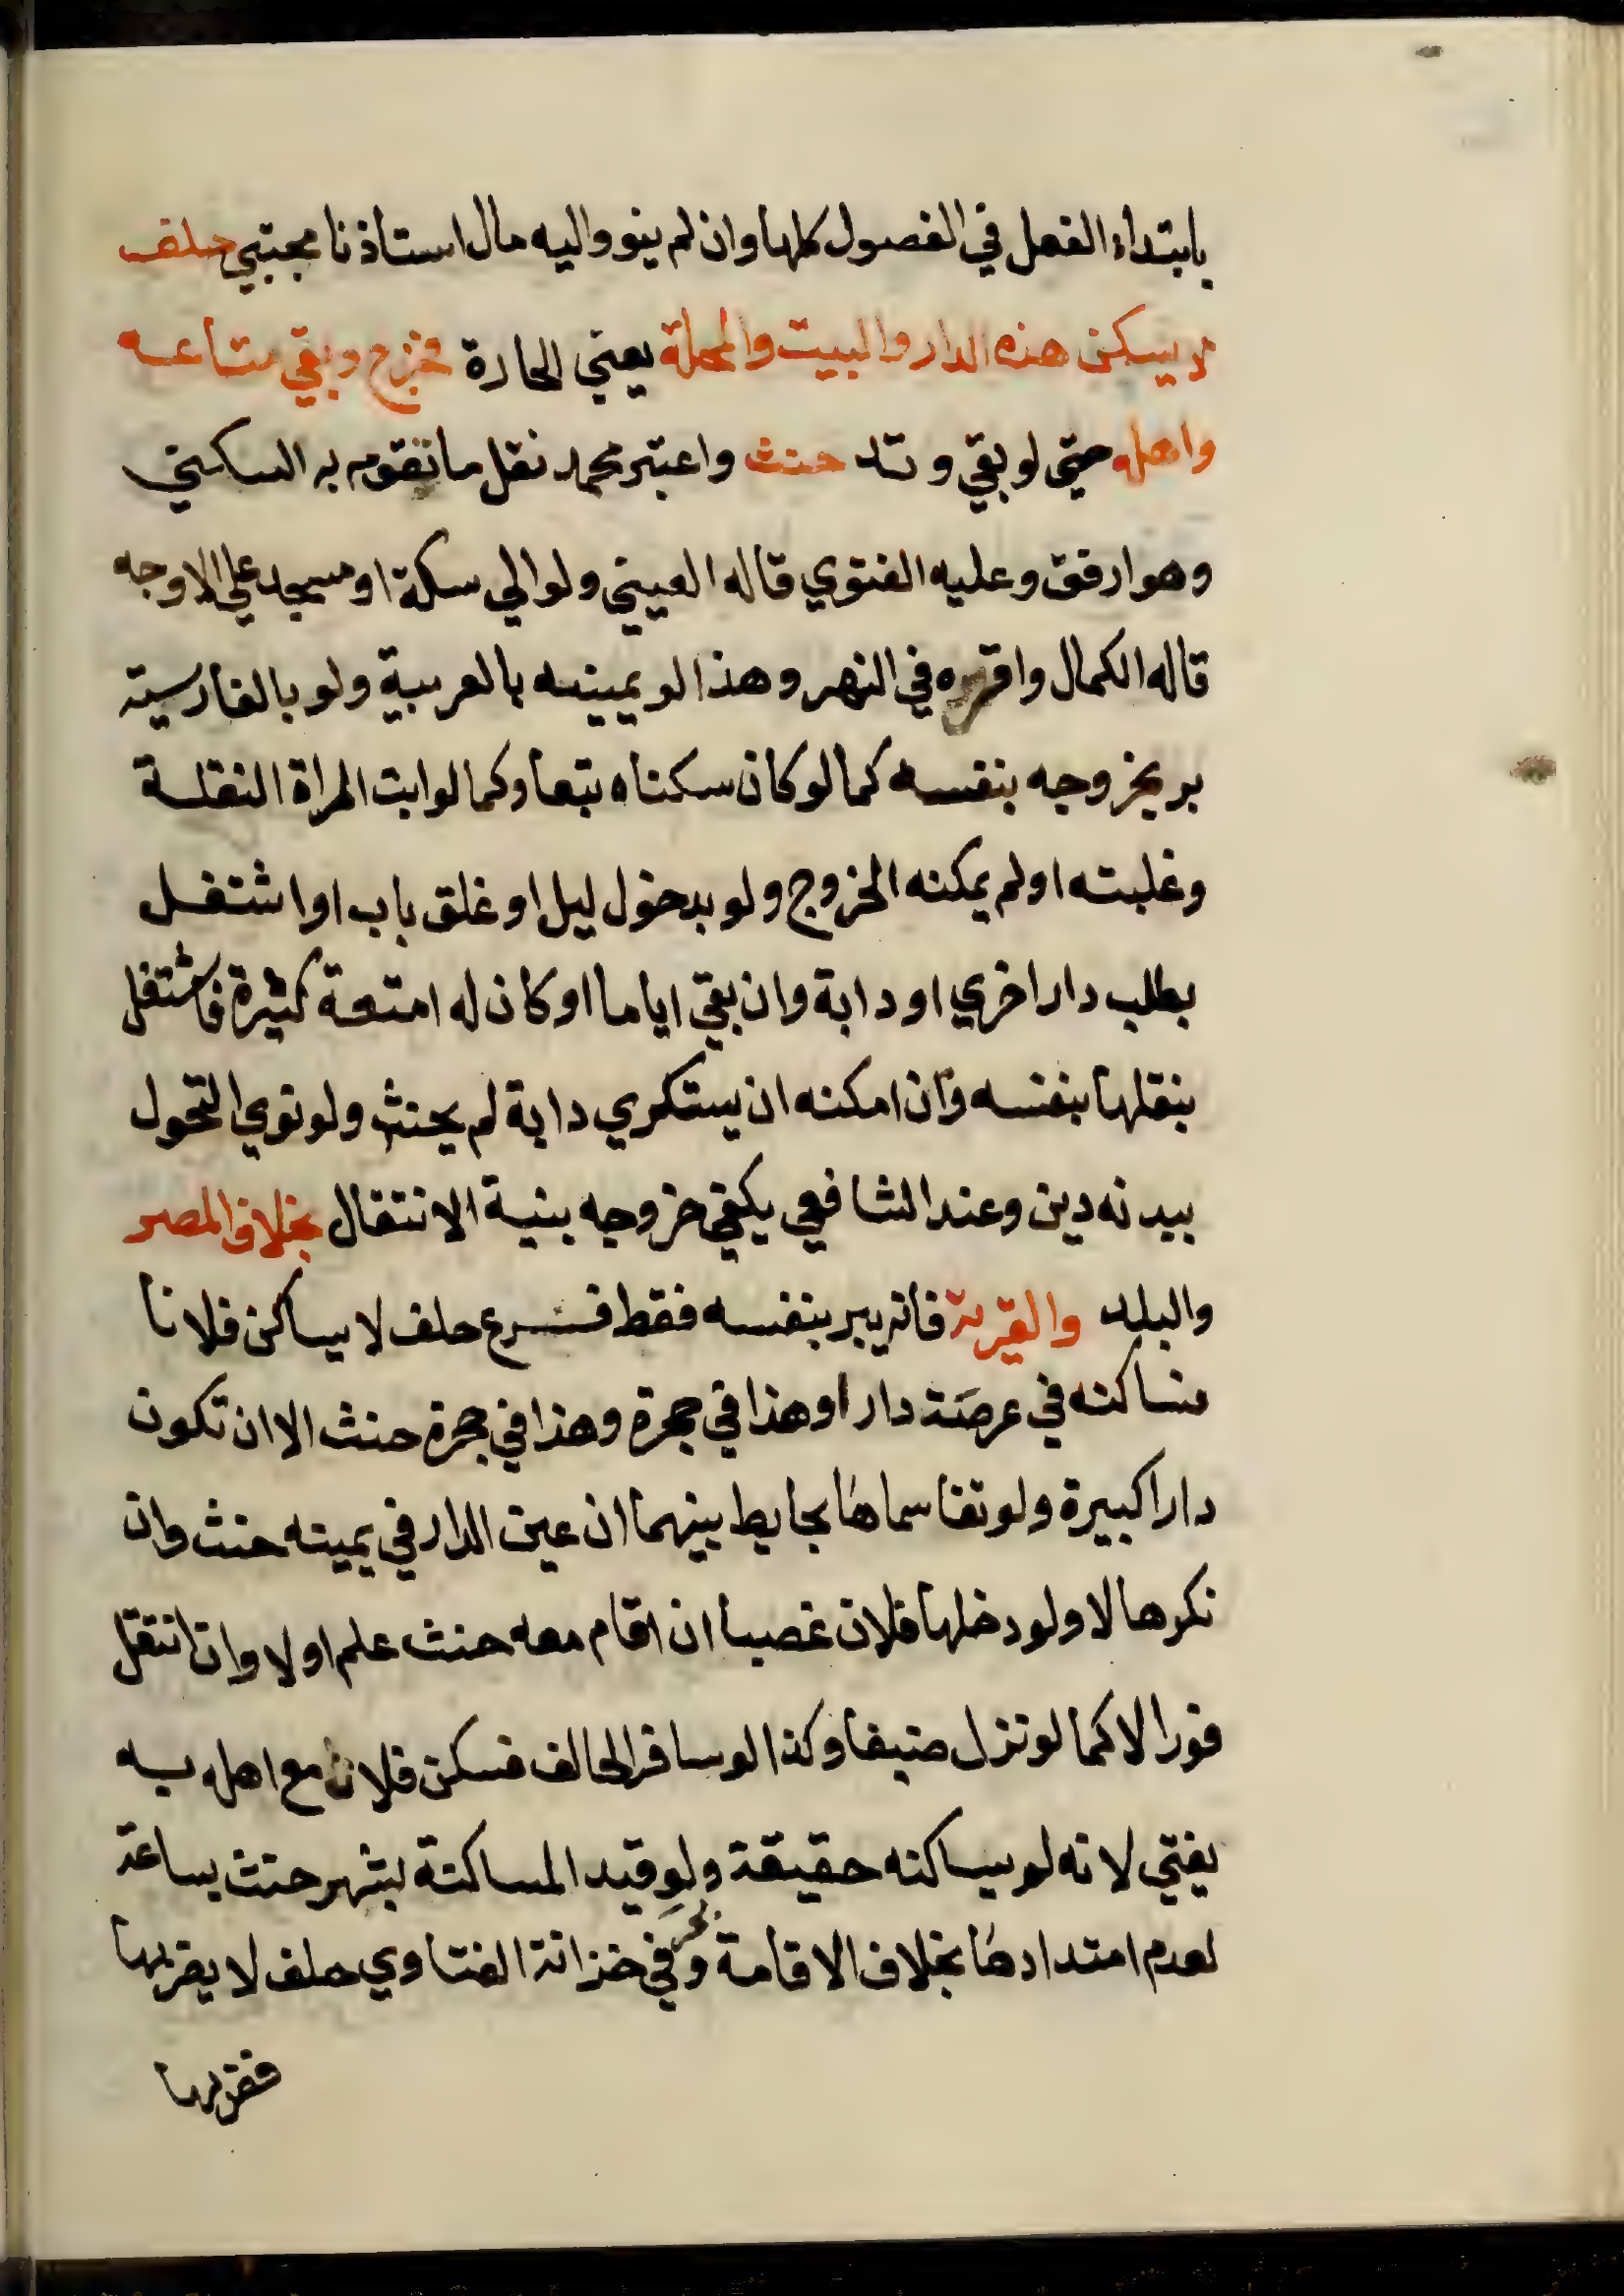 بابتداء الفعل في الفصول كلها وان لم ينو واليه مال استاذنا مجتبي حلف
لا يسكن هذه الدار والبيت والمحلة يعني الحارة فخرج وبقي متاعه
واهله حتى لو بقي وتد حنث واعتبر محمد نقل ما تقوم به السكني
وهو ارفق وعليه الفتوي قاله العيني ولو الي سكة او مسجد علي الاوجه
قاله الكمال واقره في النهر وهذا لو يمينه بالعربية ولو بالفارسية
بر بخروجه بنفسه كما لو كان سكناه تبعا وكما لو ابت المراة النقلة
وغلبته او لم يمكنه الخروج ولو بدخول ليل او غلق باب او اشتغل
بطلب دار اخري او دابة وان بقي اياما او كان له امتعة كثيرة فاشتغل
بنقلها بنفسه وان امكنه ان يستكري دابة لم يحنث ولو نوي التحول
ببدنه دين وعند الشافعي يكفي خروجه بنية الانتقال بخلاف المصر
والبلد والقرية فانه يبر بنفسه فقط فرع حلف لا يساكن فلانا
فساكنه في عرصة دار او هذا في حجرة وهذا في حجرة حنث الا ان تكون
دارا كبيرة ولو تقاسماها بحايط بينهما ان عين الدار في يمينه حنث وان
نكرها لا ولو دخلها فلان غصبا ان اقام معه حنث علم او لا وان انتقل
فورا لا كما لو نزل ضيفا وكذا لو سافر الحالف فسكن فلان مع اهله به
يفتي لانه لم يساكنه حقيقة ولو قيد المساكنة بشهر حنث بساعة
لعدم امتدادها بخلاف الاقامة بحر وفي خزانة الفتاوي حلف لا يضربها
فضربها